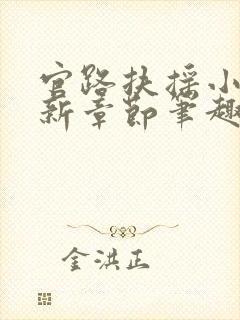 官路扶摇小
新章节笔趣
金洪正